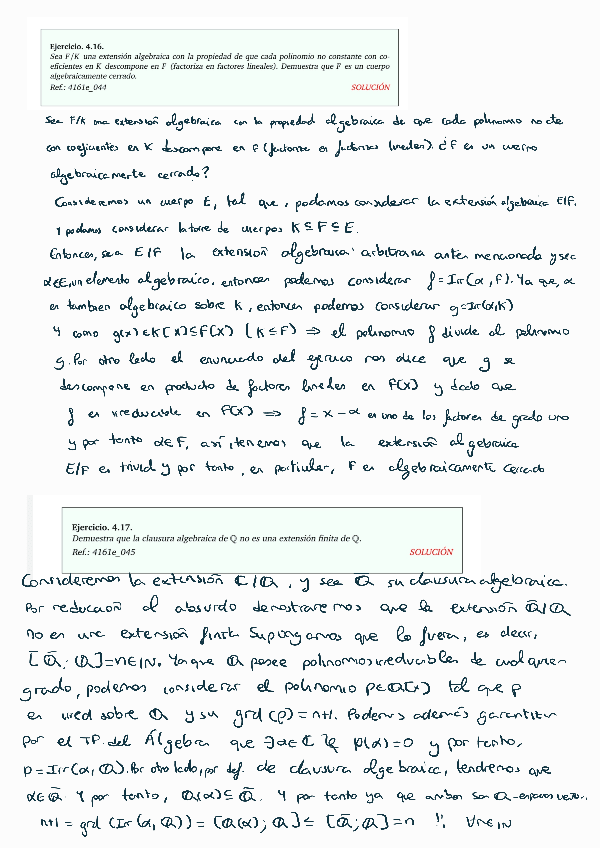 Ejercicio. 4.16.
Sea F/K una extensión algebraica con la propiedad de que cada polinomio no constante con co-
eficientes en K descompone en F (factoriza en factores lineales). Demuestra que F es un cuerpo
algebraicamente cerrado.
Ref.: 4161e_044 SOLUCIÓN
Sea F/K una extensión algebraica con la propiedad algebraica de que cada polinomio no cte
con coeficientes en K descompone en F (factorice en factores lineales). ¿F es un cuerpo
algebraicamente cerrado?
Consideremos un cuerpo E, tal que, podamos considerar la extensión algebraica E/F.
Y podamos considerar la torre de cuerpos K ⊆ F ⊆ E.
Entonces, sea E/F la extensión algebraica arbitraria antes mencionada y sea
α∈E, un elemento algebraico. entonces podemos considerar f = Irr(α, F). Ya que, α
es tambien algebraico sobre K, entonces podemos considerar g=Irr(α,K)
Y como g(x)∈K[x]⊆F(x) (K⊆F) ⇒ el polinomio f divide al polinomio
g. Por otro lado el enunciado del ejercico nos dice que g se
descompone en producto de factores lineales en F(x) y dado que
f es irreducible en F(x) ⇒ f = x-α es uno de los factores de grado uno
y por tanto α∈F, así, tenemos que la extensión algebraica
E/F es trivial y por tanto, en particular, F es algebraicamente cerrado
Ejercicio. 4.17.
Demuestra que la clausura algebraica de ℚ no es una extensión finita de ℚ.
Ref.: 4161e_045 SOLUCIÓN
Consideremos la extensión ℂ/ℚ, y sea ℚ̄ su clausura algebraica.
Por reducción al absurdo demostraremos que la extensión ℚ̄/ℚ
no es una extensión finita. Supongamos que lo fuera, es decir,
[ℚ̄; ℚ]=n∈ℕ. Ya que ℚ posee polinomios irreducibles de cualquier
grado, podemos considerar el polinomio p∈ℚ(x) tal que p
es irred sobre ℚ y su grd(p)=n+1. Podemos además garantizar
por el TF. del Álgebra que ∃α∈ℂ tq p(α)=0 y por tanto,
p=Irr(α,ℚ). Por otro lado, por def. de clausura algebraica, tendremos que
α∈ℚ̄. Y por tanto, ℚ(α)⊆ℚ̄. Y por tanto ya que ambos son ℚ-espacios
n+1 = grd (Irr(α,ℚ)) = [ℚ(α);ℚ] ≤ [ℚ̄;ℚ]=n !!, ∀n∈ℕ